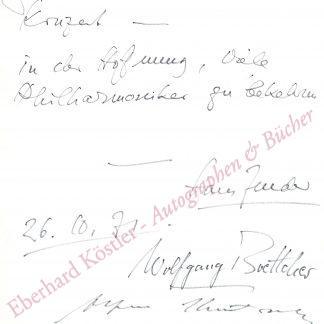 Konzert —
in der Hoffnung, viele
Philharmoniker zu bekehren
—
Hans Zender
26. 10. 71.
Wolfgang Boettcher
Eberhard Köstler - Autographen & Bücher